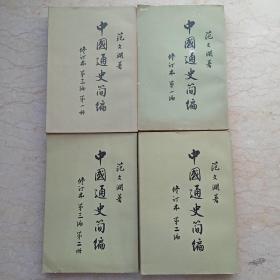 范文澜著
中國通史简编
修订本 第三编 第一册
范文澜著
中國通史简编
修订本 第一编
范文澜著
中國通史简编
修订本 第三编 第二册
范文澜著
中國通史简编
修订本 第二编